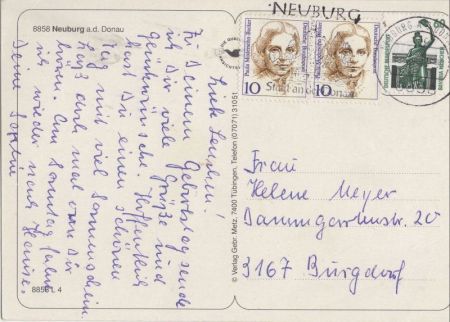 8858 Neuburg a.d. Donau
NEUBURG
Liebe Lenchen!
Zu Deinem Geburtstag sende
ich Dir viele Grüße und
Glückwünsche. Hoffentlich
hast Du einen schönen
Tag mit viel Sonnenschein.
Laß doch mal von Dir
hören. Am Sonntag fahren
wir wieder nach Hause.
Deine
8858 L 4
© Verlag Gebr. Metz, 7400 Tübingen, Telefon (07071) 31051
Paula Modersohn-Becker
Deutsche Bundespost
10
Paula Modersohn-Becker
Deutsche Bundespost
10
60
Stadt an der Donau
Frau
Helene Meyer
Baumgartenstr. 20
3167 Burgdorf